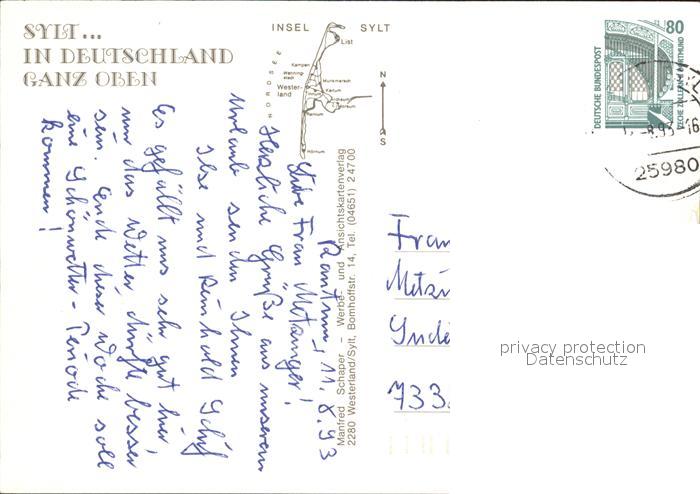 SYLT...
IN DEUTSCHLAND
GANZ OBEN
INSEL SYLT
List
Kampen
Westerland
Munkmarsch
Keitum
Rantum
Hörnum
NORDSEE
N
S
80
DEUTSCHE BUNDESPOST
ZECHE ZOLLERN II DORTMUND
-8.93-16
25980
Manfred Schaper – Werbe- und Ansichtskartenverlag
2280 Westerland/Sylt, Bomhoffstr. 14, Tel. (04651) 2 47 00
Rantum, 11.8.93
Liebe Frau Metzinger!
Herzliche Grüße aus unserem
Urlaub senden Ihnen
Ilse und Reinhold Schif
Es gefällt uns sehr gut hier,
nur das Wetter dürfte besser
sein. Ende dieser Woche soll
eine Schönwetter-Periode
kommen!
Frau
Metzi
733
privacy protection
Datenschutz